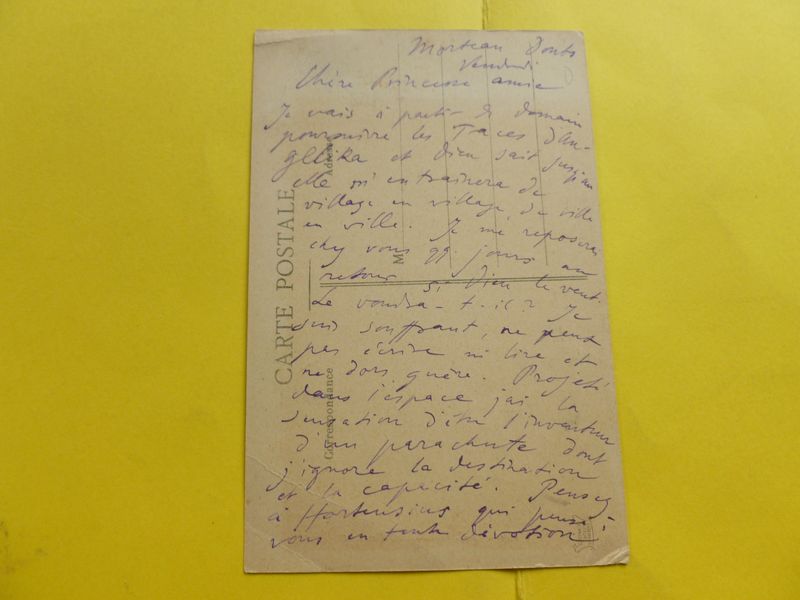 Morteau Doubs
Vendredi
Chère Princesse amie
Je vais à partir de demain
poursuivre les Traces d'An-
gélika et Dieu sait jusqu'au
elle m'entrainera de
village en village, de ville
en ville. Je me reposerai
chez vous qq. jours au
retour si Dieu le veut.
Le voudra-t-il? Je
suis souffrant, ne peux
pas écrire ni lire et
ne dors guère. Projeté
dans l'espace j'ai la
sensation d'être l'inventeur
d'un parachute dont
j'ignore la destination
et la capacité. Pensez
à Hortensius qui pense à
vous en toute dévotion
CARTE POSTALE
Correspondance
Adresse
M